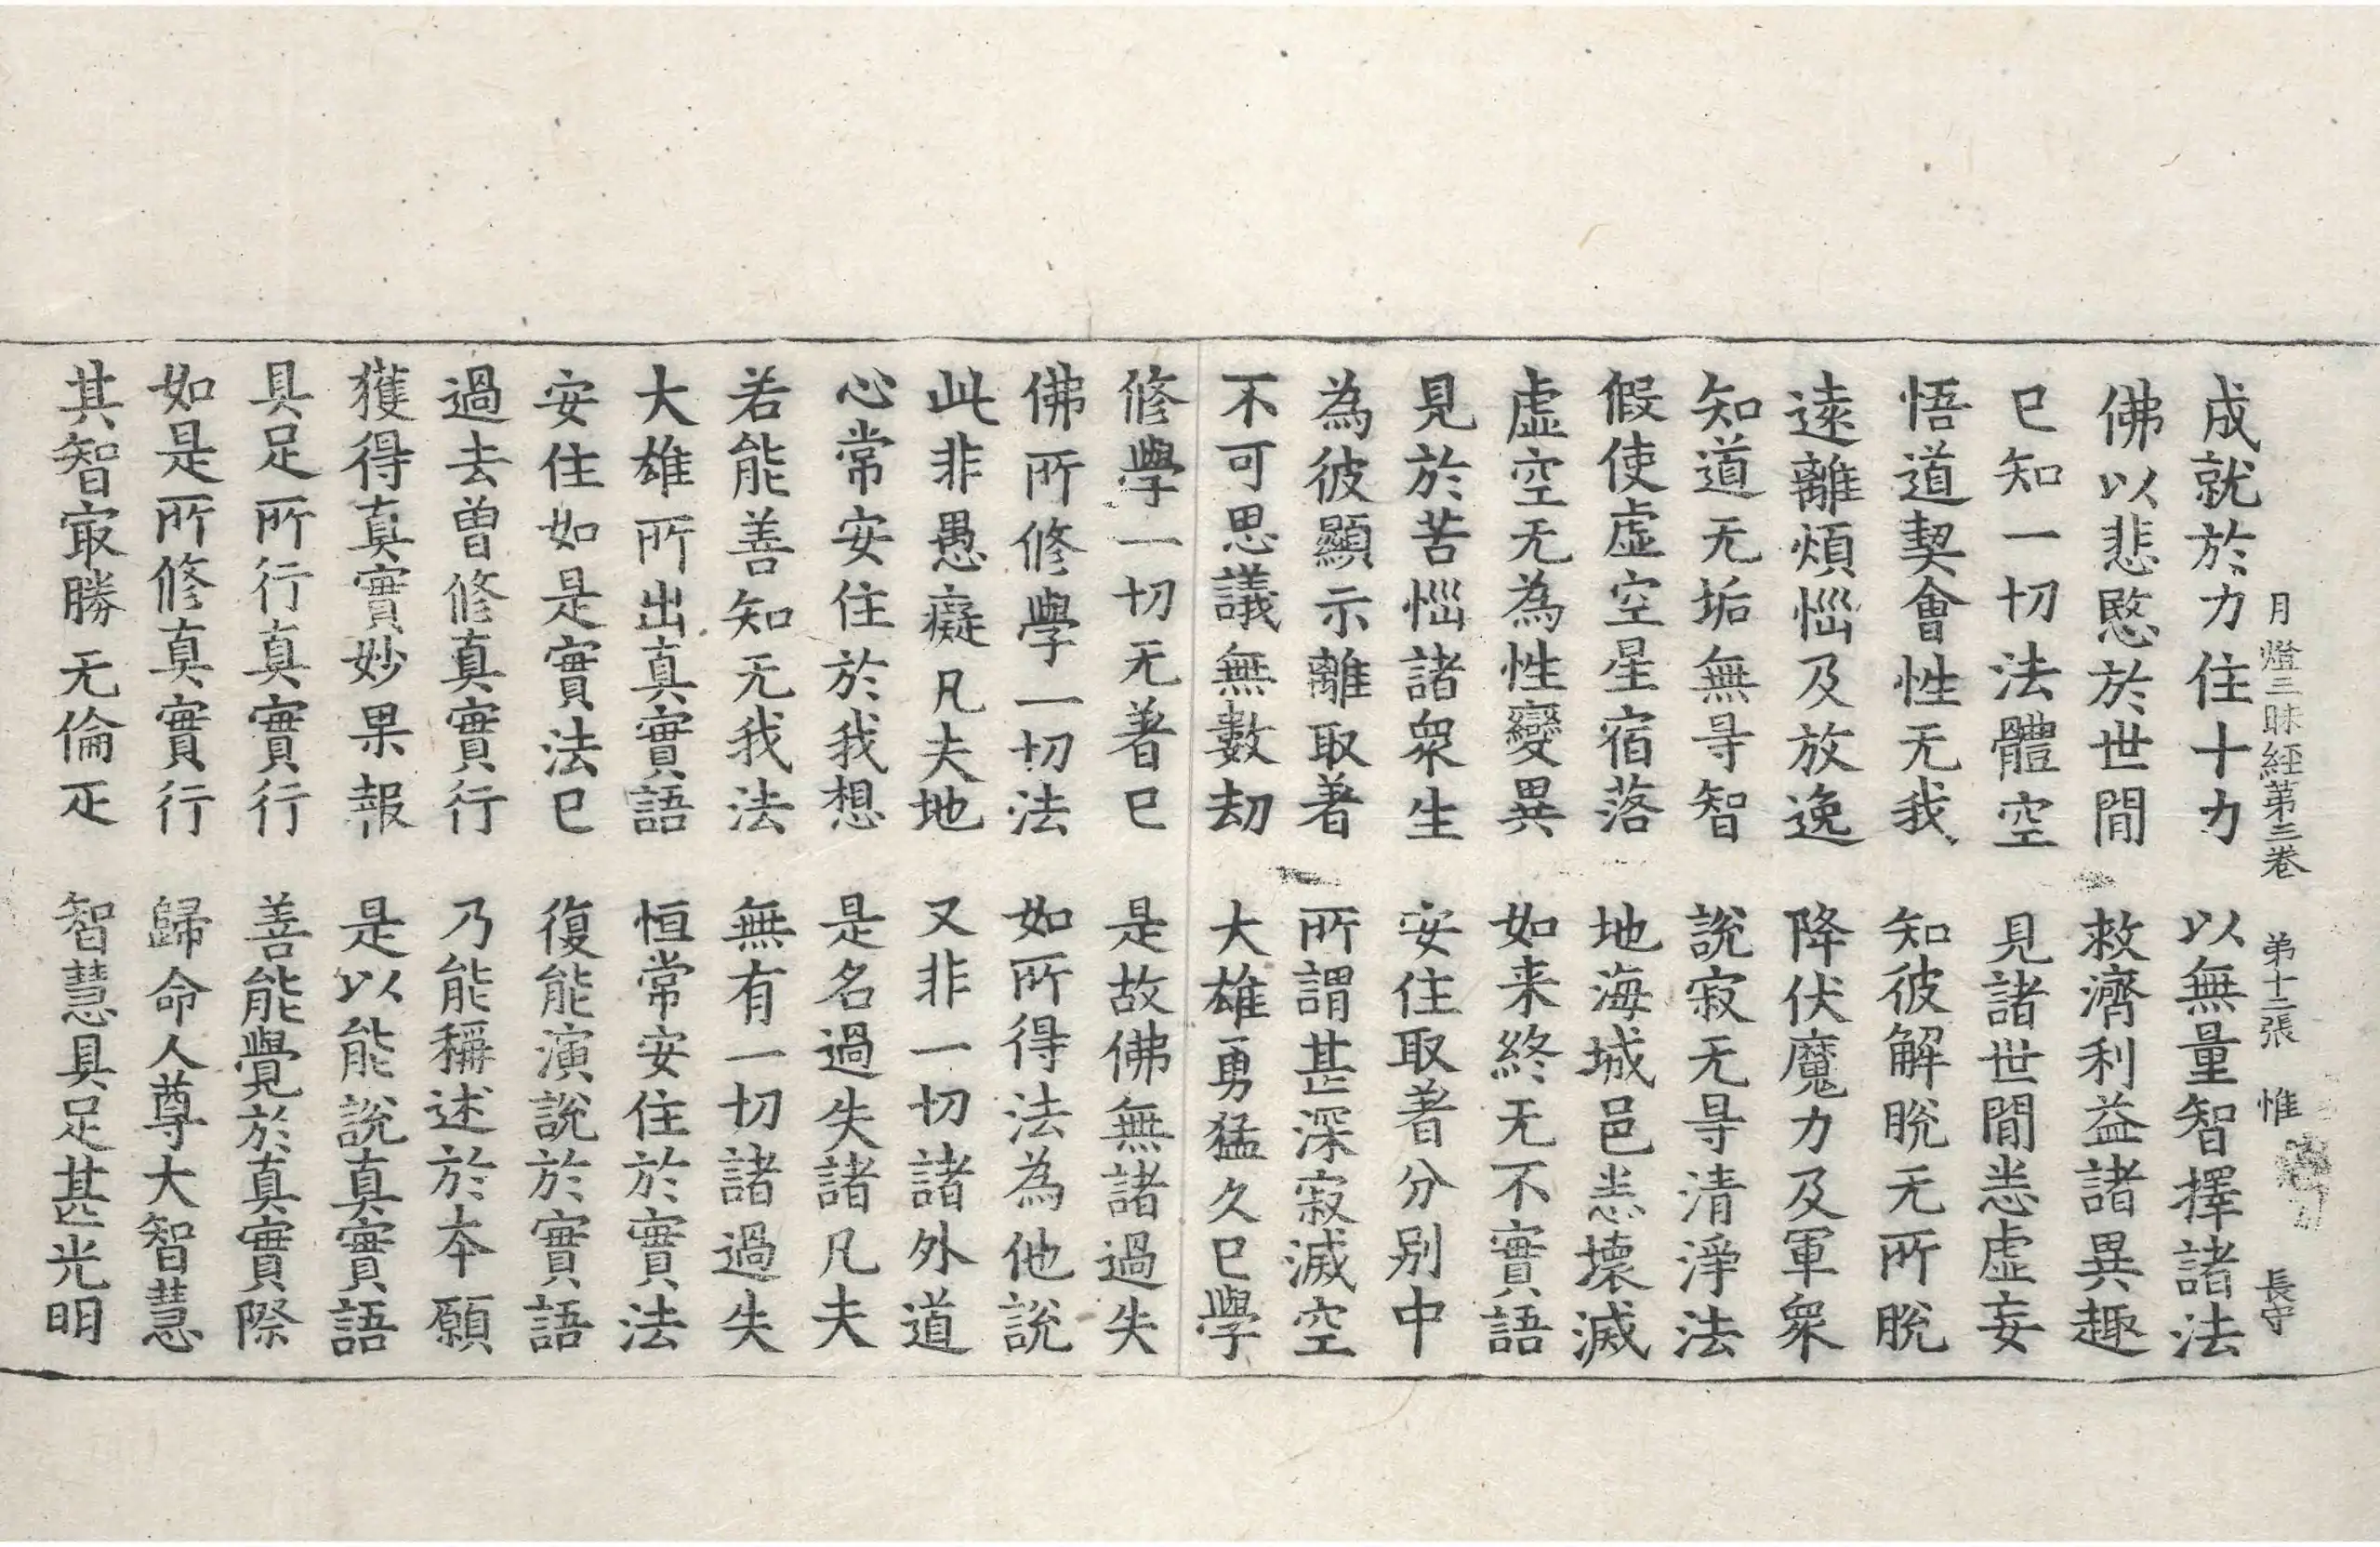 月燈三昧經第三卷　第十二張　惟　長守
成就於力住十力　以無量智擇諸法
佛以悲愍於世間　救濟利益諸異趣
已知一切法體空　見諸世間悉虛妄
悟道契會性无我　知彼解脫无所脫
遠離煩惱及放逸　降伏魔力及軍衆
知道无垢無㝵智　說寂无㝵清淨法
假使虛空星宿落　地海城邑悉壞滅
虛空无為性變異　如来終无不實語
見於苦惱諸衆生　安住取著分别中
為彼顯示離取著　所謂甚深寂滅空
不可思議無數劫　大雄勇猛久已學
修學一切无著已　是故佛無諸過失
佛所修學一切法　如所得法為他說
此非愚癡凡夫地　又非一切諸外道
心常安住於我想　是名過失諸凡夫
若能善知无我法　無有一切諸過失
大雄所出真實語　恒常安住於實法
安住如是實法已　復能演說於實語
過去曾修真實行　乃能稱述於本願
獲得真實妙果報　是以能說真實語
具足所行真實行　善能覺於真實際
如是所修真實行　歸命人尊大智慧
其智㝡勝无倫疋　智慧具足甚光明